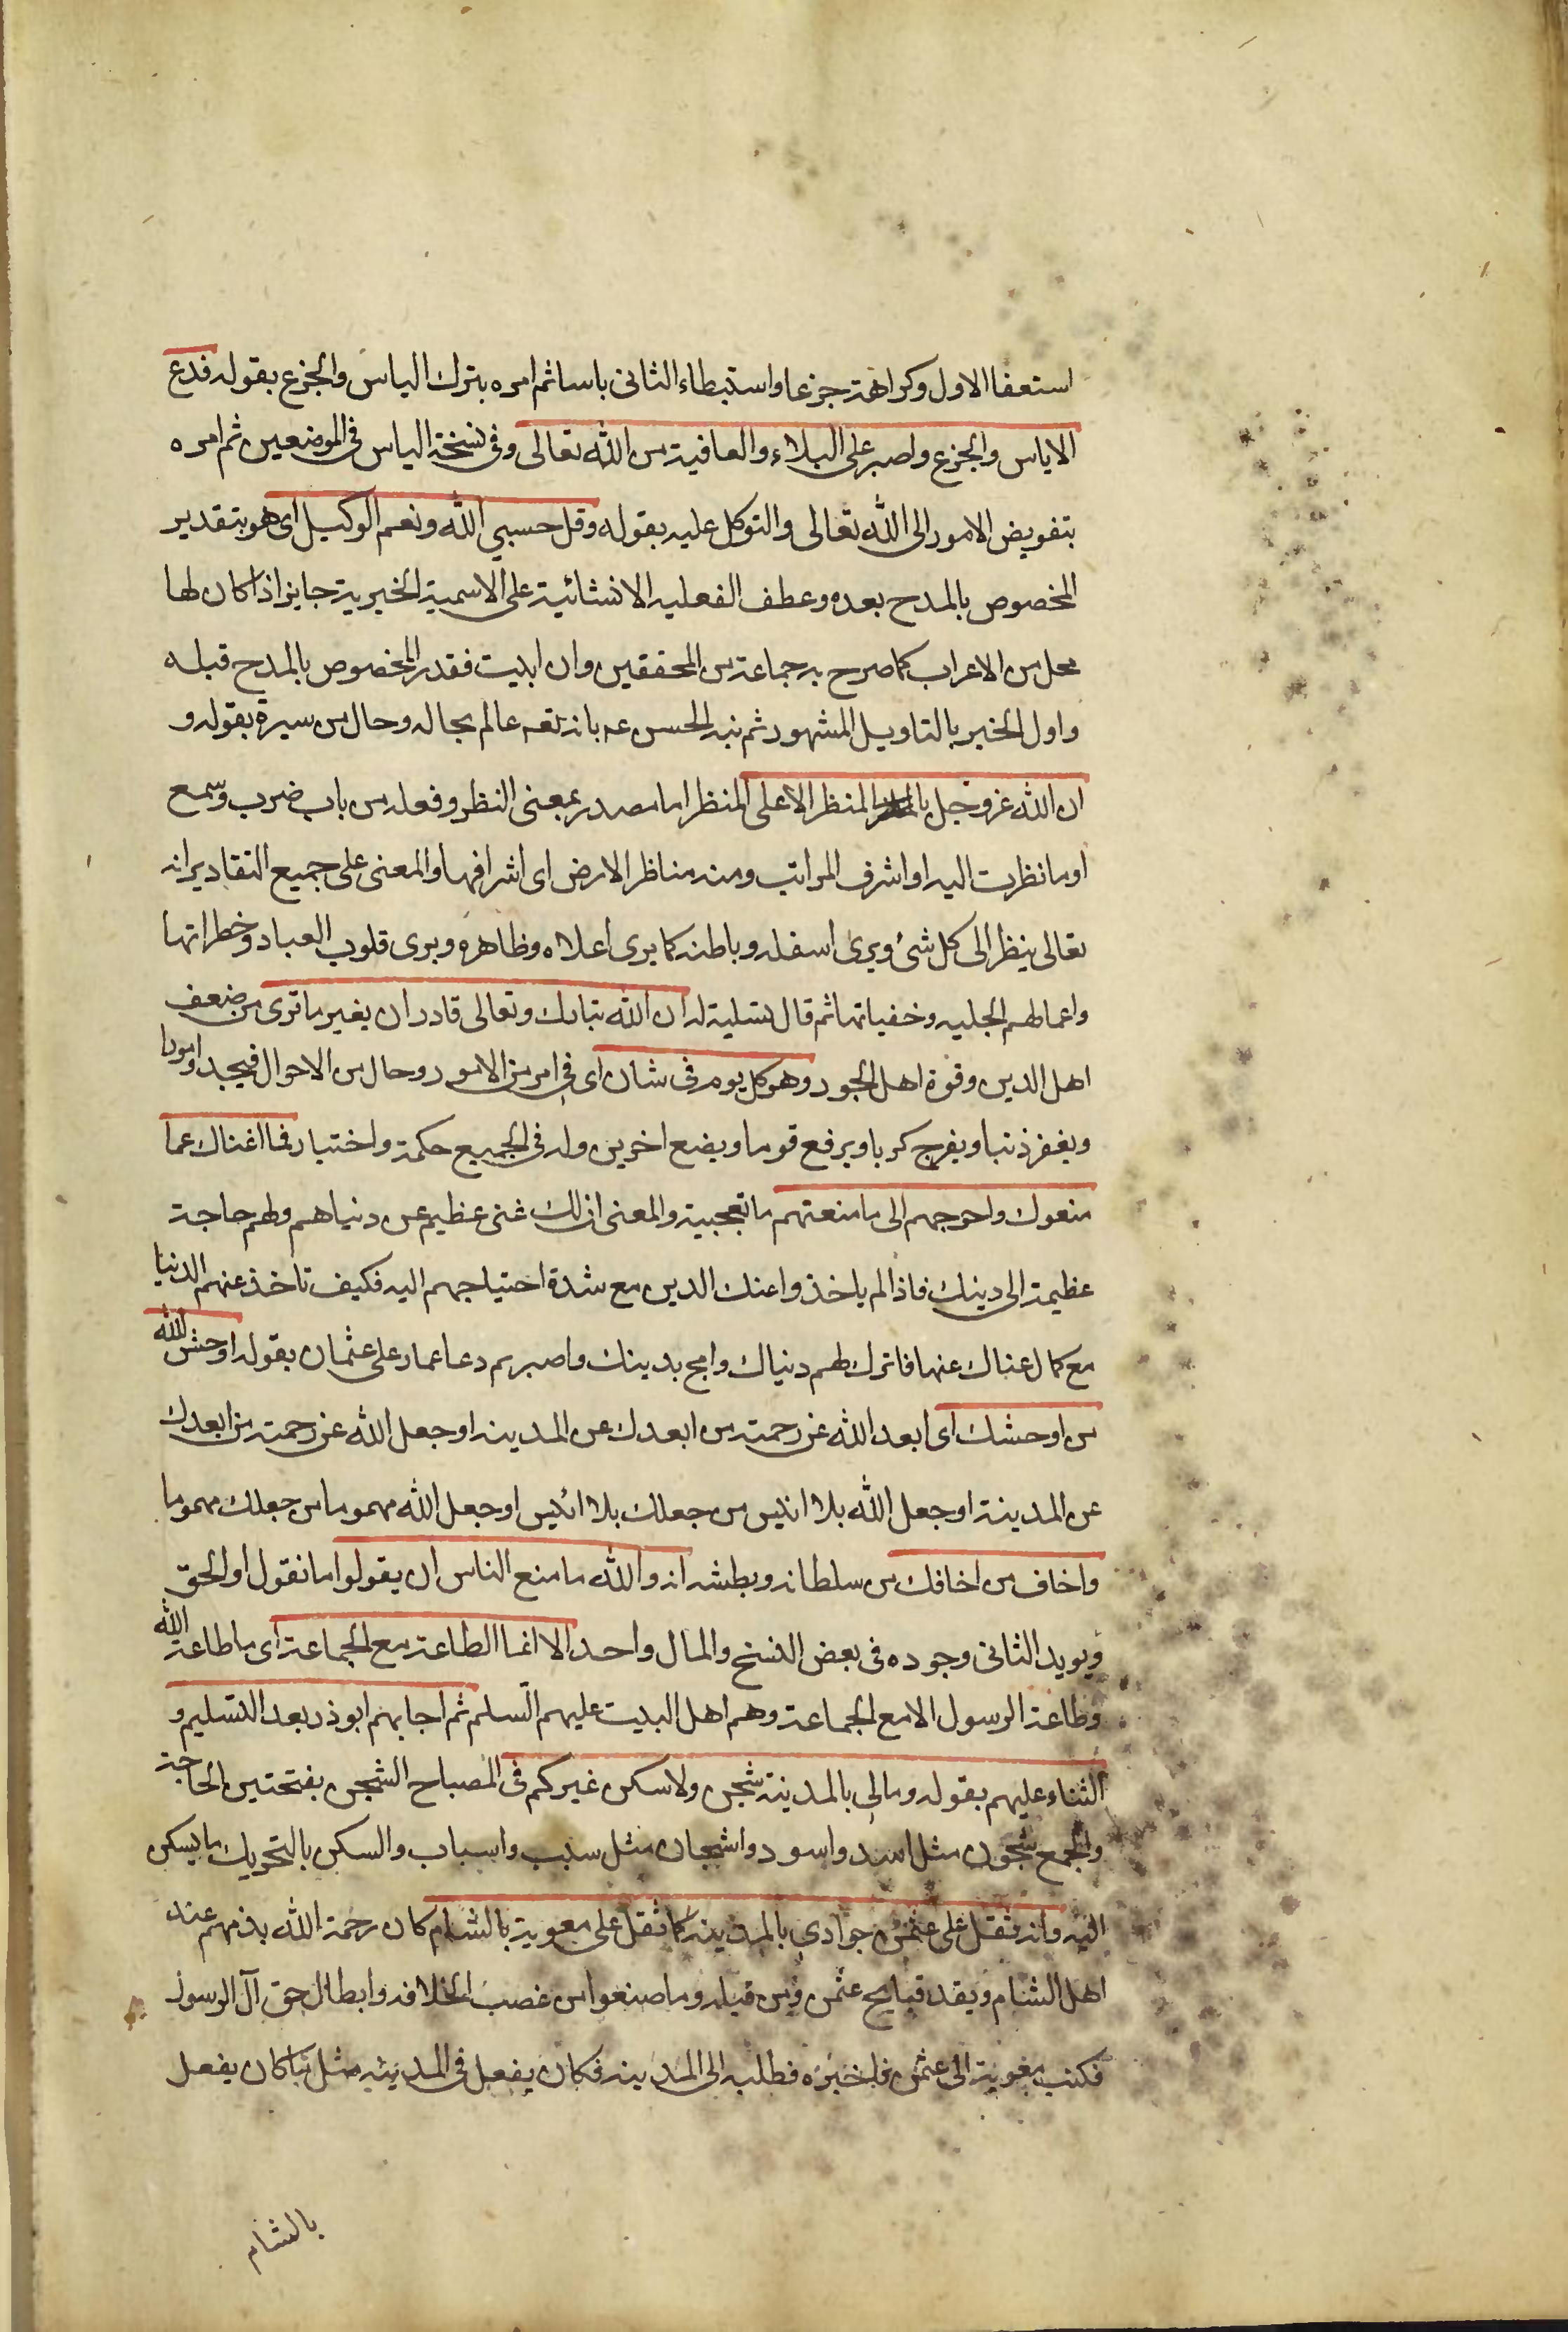 استعفا الاول وكراهته جزعا واستبطاء الثانى ياسا ثم امره بترك الياس والجزع بقوله فدع
الاياس والجزع واصبر على البلاء والعافية من الله تعالى وفى نسخة الياس فى الموضعين ثم امره
بتفويض الامور الى الله تعالى والتوكل عليه بقوله وقل حسبي الله ونعم الوكيل اى هو بتقدير
المخصوص بالمدح بعده وعطف الفعليه الانشائية على الاسمية الخبرية جايز اذا كان لها
محل من الاعراب كما صرح به جماعة من المحققين وان ابيت فقدر المخصوص بالمدح قبله
واول الخبر بالتاويل المشهور ثم نبه الحسن عه بانه تعه عالم بحاله وحال من سيره بقوله و
ان الله عز وجل بالمنظر الاعلى المنظر اما مصدر بمعنى النظر وفعله من باب ضرب وسمع
او ما نظرت اليه او اشرف المراتب ومنه مناظر الارض اى اشرافها والمعنى على جميع التقادير انه
تعالى ينظر الى كل شئ ويرى اسفله وباطنه كما يرى اعلاه وظاهره ويرى قلوب العباد وخطراتها
واعمالهم الجليه وخفياتها ثم قال تسلية له ان الله تبارك وتعالى قادر ان يغير ما ترى من ضعف
اهل الدين وقوة اهل الجور وهو كل يوم فى شان اى فى امر من الامور وحال من الاحوال فيجد امورا
ويغفر ذنبا ويفرج كربا ويرفع قوما ويضع اخرين وله فى الجميع حكمة واختبار فما اغناك عما
منعوك واحوجهم الى ما منعتهم ما تعجبية والمعنى ان لك غنى عظيم عن دنياهم ولهم حاجة
عظيمة الى دينك فاذا لم ياخذوا عنك الدين مع شدة احتياجهم اليه فكيف تاخذ عنهم الدنيا
مع كمال غناك عنها فاترك لهم دنياك وامج بدينك واصبر ثم دعا عمار على عثمان بقوله اوحش الله
من اوحشك اى ابعد الله عن رحمته من ابعدك عن المدينه او جعل الله عن رحمته من ابعدك
عن المدينة او جعل الله بلا انيس من جعلك بلا انيس او جعل الله مهموما من جعلك مهموما
واخاف من اخافك من سلطانه وبطشه انه والله ما منع الناس ان يقولوا ما نقول او الحق
ويويد الثانى وجوده فى بعض النسخ والمال واحد الا انما الطاعة مع الجماعة اى ما طاعة الله
وطاعة الرسول الا مع الجماعة وهم اهل البيت عليهم السلم ثم اجابهم ابوذر بعد التسليم و
الثناء عليهم بقوله ومالى بالمدينة شجن ولا سكن غيركم فى المصباح الشجن بفتحتين الحاجة
والجمع شجون مثل اسد واسود واشجان مثل سبب واسباب والسكن بالتحريك ما يسكن
اليه وانه ثقل على عثمن جوارى بالمدينه كما ثقل على معوية بالشام كان رحمة الله يذمهم عند
اهل الشام ويقد قبايح عثمن ومن قبله وما صنعوا من غصب الخلافه وابطال حق آل الرسول
فكتب معوية الى عثمن فاخبره فطلبه الى المدينه فكان يفعل فى المدينه مثل ما كان يفعل
بالشام